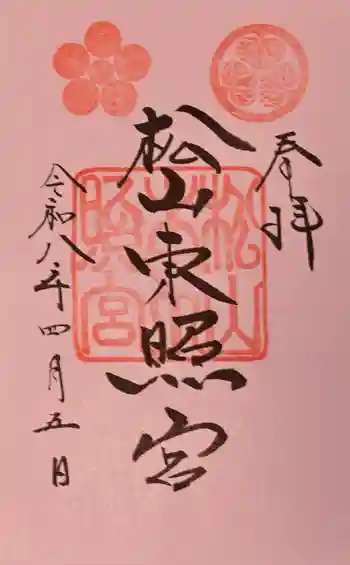 奉拝
松山東照宮
松山
東照宮
令和八年四月五日